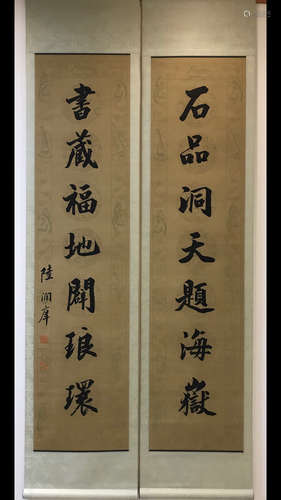 石品洞天題海嶽
書藏福地闢琅環
陸潤庠